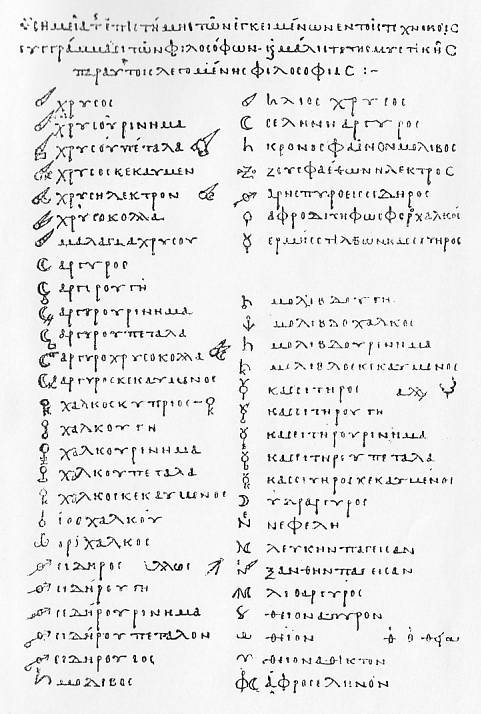 σημεῖα τῆς ἐπιστήμης τῶν ἐγκειμένων ἐν τοῖς τεχνικοῖς
συγγράμμασι τῶν φιλοσόφων καὶ μάλιστα τῆς μυστικῆς
παρ αυτοῖς λεγομένης φιλοσοφίας :-
χρυσος
χρυσου ρινημα
χρυσου πεταλα
χρυσος κεκαυμεν
χρυσηλεκτρον
χρυσοκολλα
μαλαγμα χρυσου
αργυρος
αργυρου γη
αργυρου ρινημα
αργυρου πεταλα
αργυροχρυσοκολλα
αργυρος κεκαυμενος
χαλκος κυπριος
χαλκου γη
χαλκου ρινημα
χαλκου πεταλα
χαλκος κεκαυμενος
ιος χαλκου
οριχαλκος
σιδηρος αλλως
σιδηρου γη
σιδηρου ρινημα
σιδηρου πεταλον
σιδηρου ιος
μολιβος
ηλιος χρυσος
σεληνη αργυρος
κρονος φαινων μολιβος
ζευς φαεθων ηλεκτρος
αρης πυροεις σιδηρος
αφροδιτη φωσφορ χαλκος
ερμης στιλβων κασσιτηρος
μολιβδου γη
μολιβδοχαλκος
μολιβδου ρινημα
μολιβος κεκαυμενος
κασσιτηρος αλλ
κασσιτηρου γη
κασσιτηρου ρινημα
κασσιτηρου πεταλα
κασσιτηρος κεκαυμενος
υδραργυρος
νεφελη
λευκην παγεισαν
ξανθην παγεισαν
λιθαργυρος
θειον απυρον
θειον
θειον αθικτον
αφροσεληνον